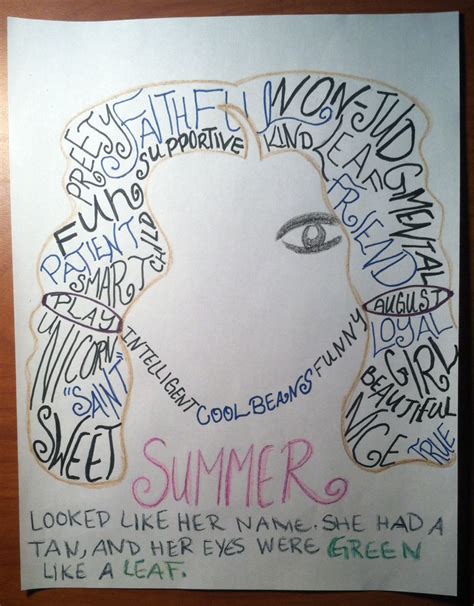 PRETTY
FAITHFUL
NON-JUDGMENTAL
SUPPORTIVE
KIND
LEAF
FUN
FRIEND
PATIENT
CHILD
SMART
PLAY
AUGUST
UNICORN
INTELLIGENT
COOL BEANS
FUNNY
LOYAL
GIRL
"SAINT"
BEAUTIFUL
SWEET
NICE
TRUE
SUMMER
LOOKED LIKE HER NAME. SHE HAD A
TAN, AND HER EYES WERE GREEN
LIKE A LEAF.